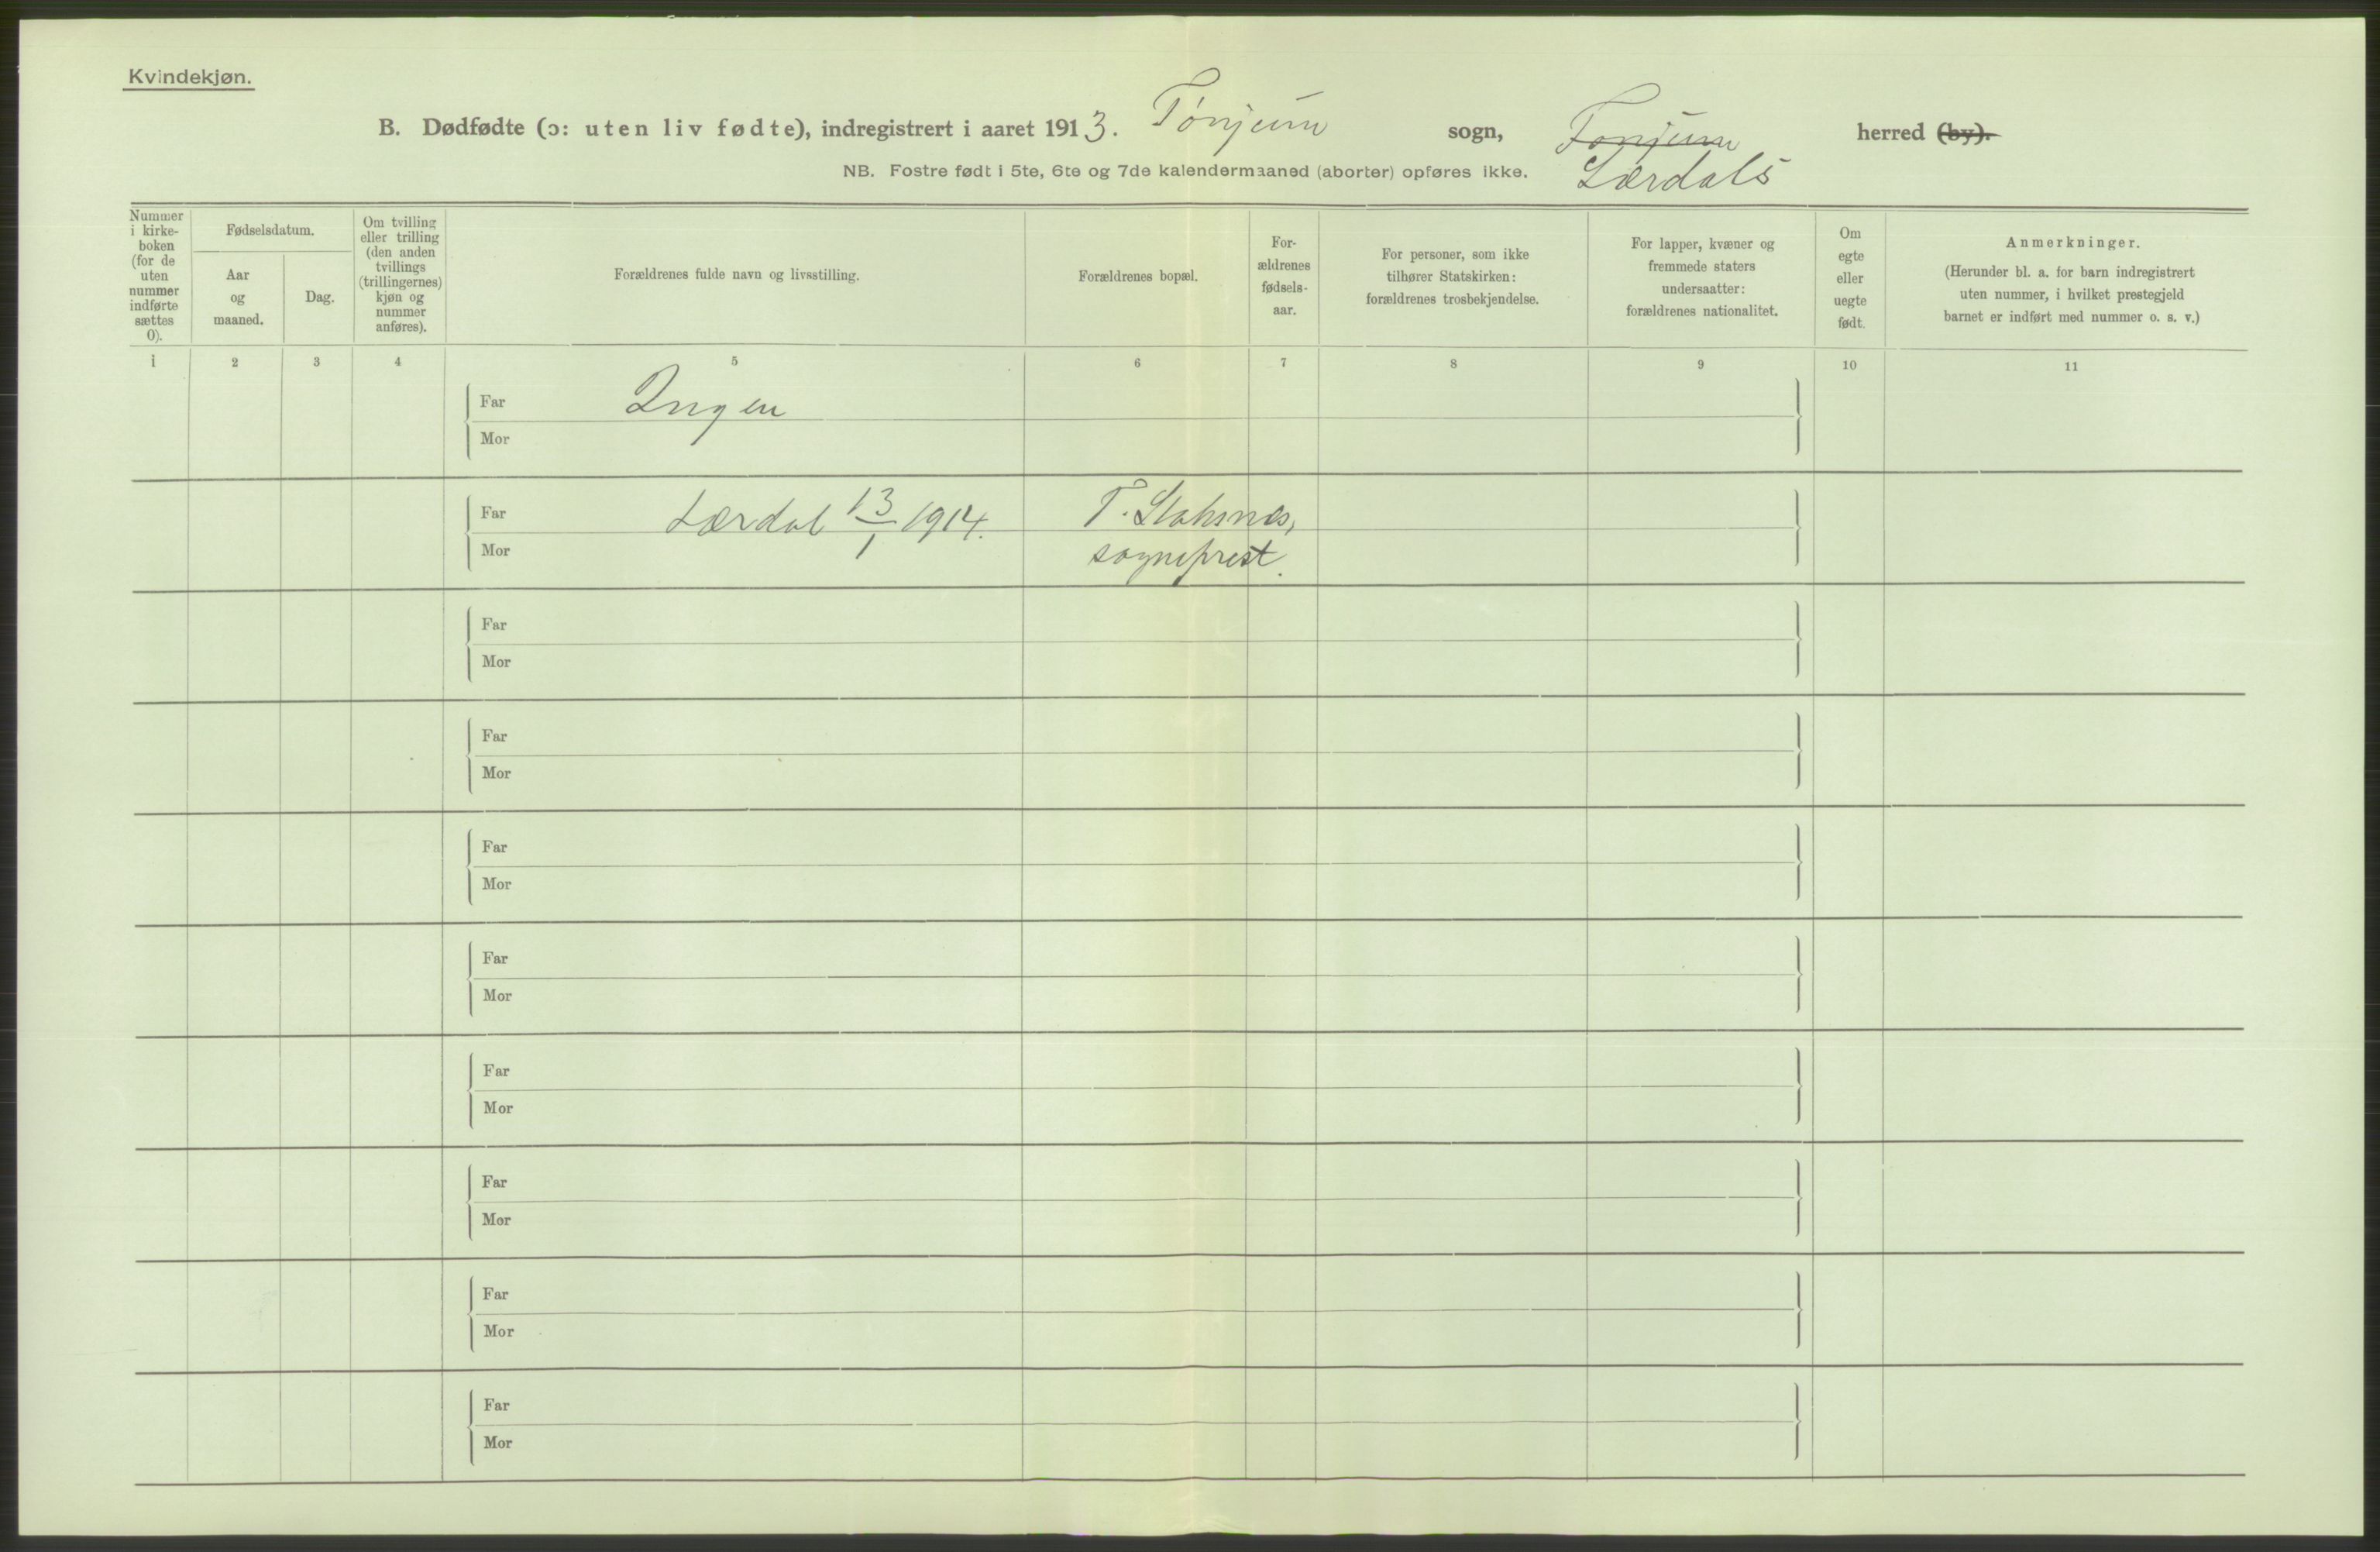 Kvindekjøn.
B. Dødfødte (ɔ: uten liv fødte), indregistrert i aaret 1913. Tønjum sogn, Tonjum herred (by).
NB. Fostre født i 5te, 6te og 7de kalendermaaned (aborter) opføres ikke. Lærdals
Nummer
i kirke-
boken
(for de
uten
nummer
indførte
sættes
0).
Fødselsdatum.
Aar
og
maaned.
Dag.
Om tvilling
eller trilling
(den anden
tvillings
(trillingernes)
kjøn og
nummer
anføres).
Forældrenes fulde navn og livsstilling.
Forældrenes bopæl.
For-
ældrenes
fødsels-
aar.
For personer, som ikke
tilhører Statskirken:
forældrenes trosbekjendelse.
For lapper, kvæner og
fremmede staters
undersaatter:
forældrenes nationalitet.
Om
egte
eller
uegte
født.
Anmerkninger.
(Herunder bl. a. for barn indregistrert
uten nummer, i hvilket prestegjeld
barnet er indført med nummer o. s. v.)
1 2 3 4 5 6 7 8 9 10 11
Far Ingen
Mor
Far Lærdal 13/1 1914. T.
Mor sogneprest.
Far
Mor
Far
Mor
Far
Mor
Far
Mor
Far
Mor
Far
Mor
Far
Mor
Far
Mor